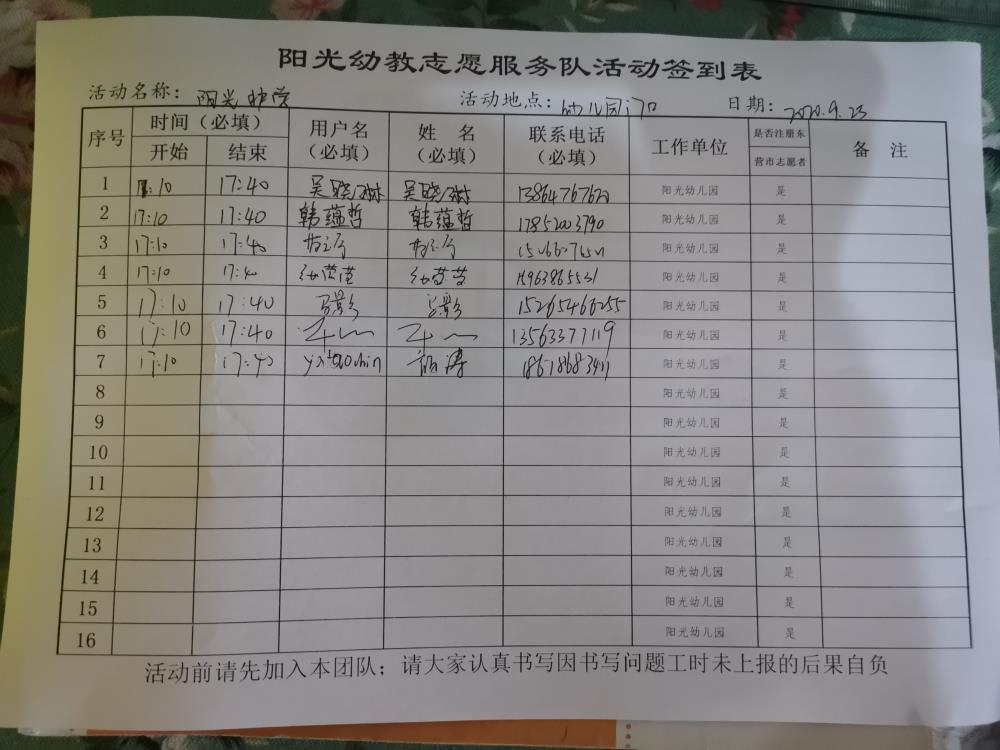 阳光幼教志愿服务队活动签到表
活动名称: 阳光护学 活动地点: 幼儿园门口 日期: 2020.9.23
序号 时间（必填） 用户名（必填） 姓 名（必填） 联系电话（必填） 工作单位 是否注册东营市志愿者 备 注
开始 结束
1 17:10 17:40 吴晓琳 吴晓琳 13864767620 阳光幼儿园 是
2 17:10 17:40 韩蕴哲 韩蕴哲 17852003790 阳光幼儿园 是
3 17:10 17:40 阳光幼儿园 是
4 17:10 17:40 阳光幼儿园 是
5 17:10 17:40 15265466255 阳光幼儿园 是
6 17:10 17:40 13563377119 阳光幼儿园 是
7 17:10 17:40 18618683411 阳光幼儿园 是
8 阳光幼儿园 是
9 阳光幼儿园 是
10 阳光幼儿园 是
11 阳光幼儿园 是
12 阳光幼儿园 是
13 阳光幼儿园 是
14 阳光幼儿园 是
15 阳光幼儿园 是
16 阳光幼儿园 是
活动前请先加入本团队；请大家认真书写因书写问题工时未上报的后果自负